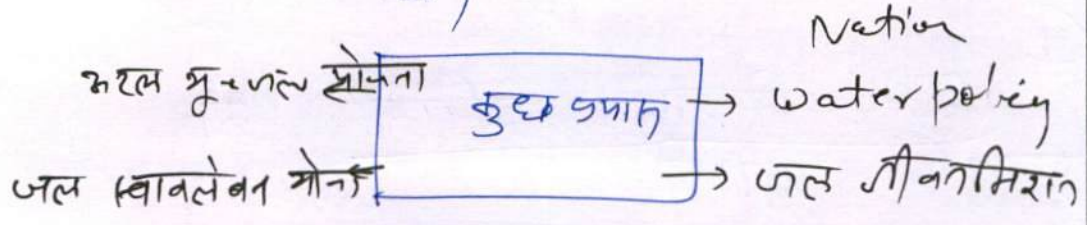 Nation
अटल भू-जल योजना
कुछ प्रयास → water policy
जल स्वावलंबन योजना
→ जल जीवन मिशन